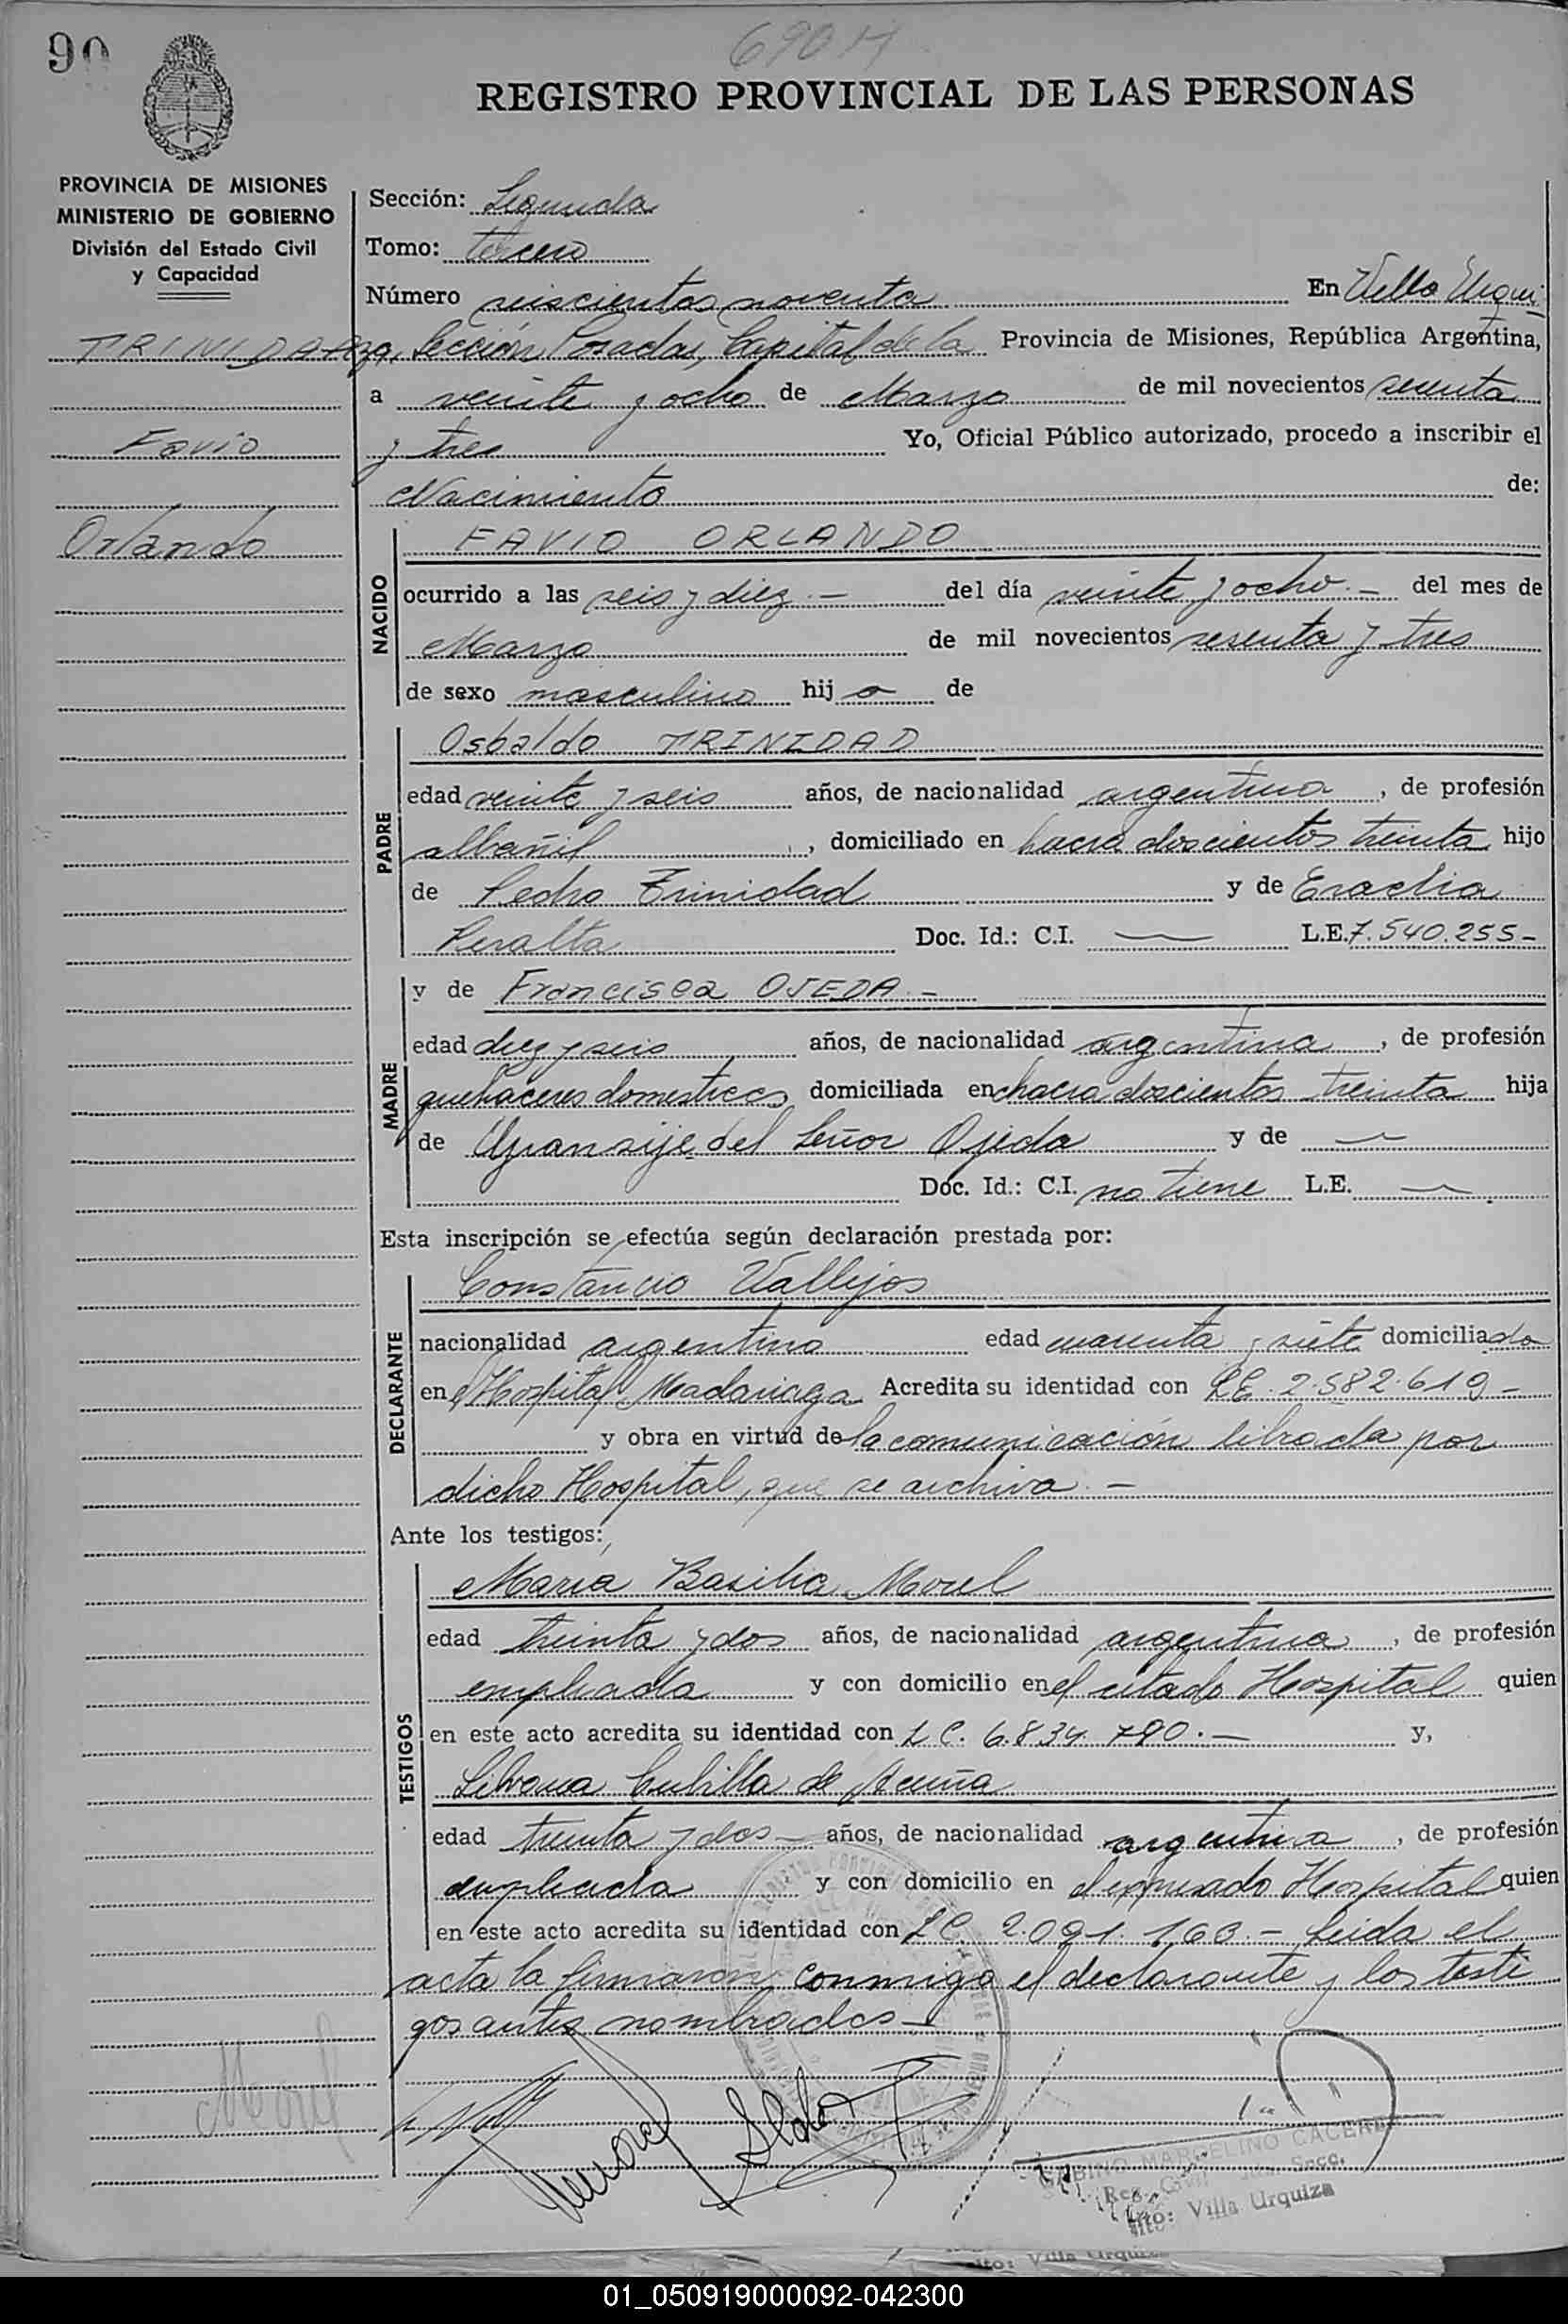 90
690 M
REGISTRO PROVINCIAL DE LAS PERSONAS
PROVINCIA DE MISIONES
MINISTERIO DE GOBIERNO
División del Estado Civil
y Capacidad
TRINIDAD
Favio
Orlando
Sección: Segunda
Tomo: tercero
Número seiscientos noventa En Villa Urqui
za, Sección Posadas, Capital de la Provincia de Misiones, República Argentina,
a veinte y ocho de Marzo de mil novecientos sesenta
y tres Yo, Oficial Público autorizado, procedo a inscribir el
Nacimiento de:
NACIDO
FAVIO ORLANDO
ocurrido a las seis y diez.- del día veinte y ocho.- del mes de
Marzo de mil novecientos sesenta y tres
de sexo masculino hij o de
PADRE
Osbaldo TRINIDAD
edad veinte y seis años, de nacionalidad argentina, de profesión
albañil, domiciliado en hacra doscientos treinta hijo
de Pedro Trinidad y de Eraclia
Peralta Doc. Id.: C.I. — L.E. 7.540.255-
MADRE
y de Francisca OJEDA.-
edad diez y seis años, de nacionalidad argentina, de profesión
quehaceres domesticos domiciliada en chacra doscientos treinta hija
de del Señor Ojeda y de —
Doc. Id.: C.I. no tiene L.E. —
Esta inscripción se efectúa según declaración prestada por:
DECLARANTE
Constancio Vallejos
nacionalidad argentino edad cuarenta y siete domiciliado
en el Hospital Madariaga Acredita su identidad con L.E. 2.582.619-
y obra en virtud de la comunicación librada por
dicho Hospital, que se archiva.-
Ante los testigos:
TESTIGOS
Maria Basilia Morel
edad treinta y dos años, de nacionalidad argentina, de profesión
empleada y con domicilio en el citado Hospital quien
en este acto acredita su identidad con L C. 6.834.790.- y,
Silvana Cubilla de Acuña
edad treinta y dos - años, de nacionalidad argentina, de profesión
empleada y con domicilio en el expresado Hospital quien
en este acto acredita su identidad con L C. 2.091.163.- Leida el
acta la firmaron conmigo el declarante y los testi
gos antes nombrados-
Morel
GABINO MARCELINO CACERES
Reg. Civil Secc.
Villa Urquiza
Villa Urquiza
01_050919000092-042300